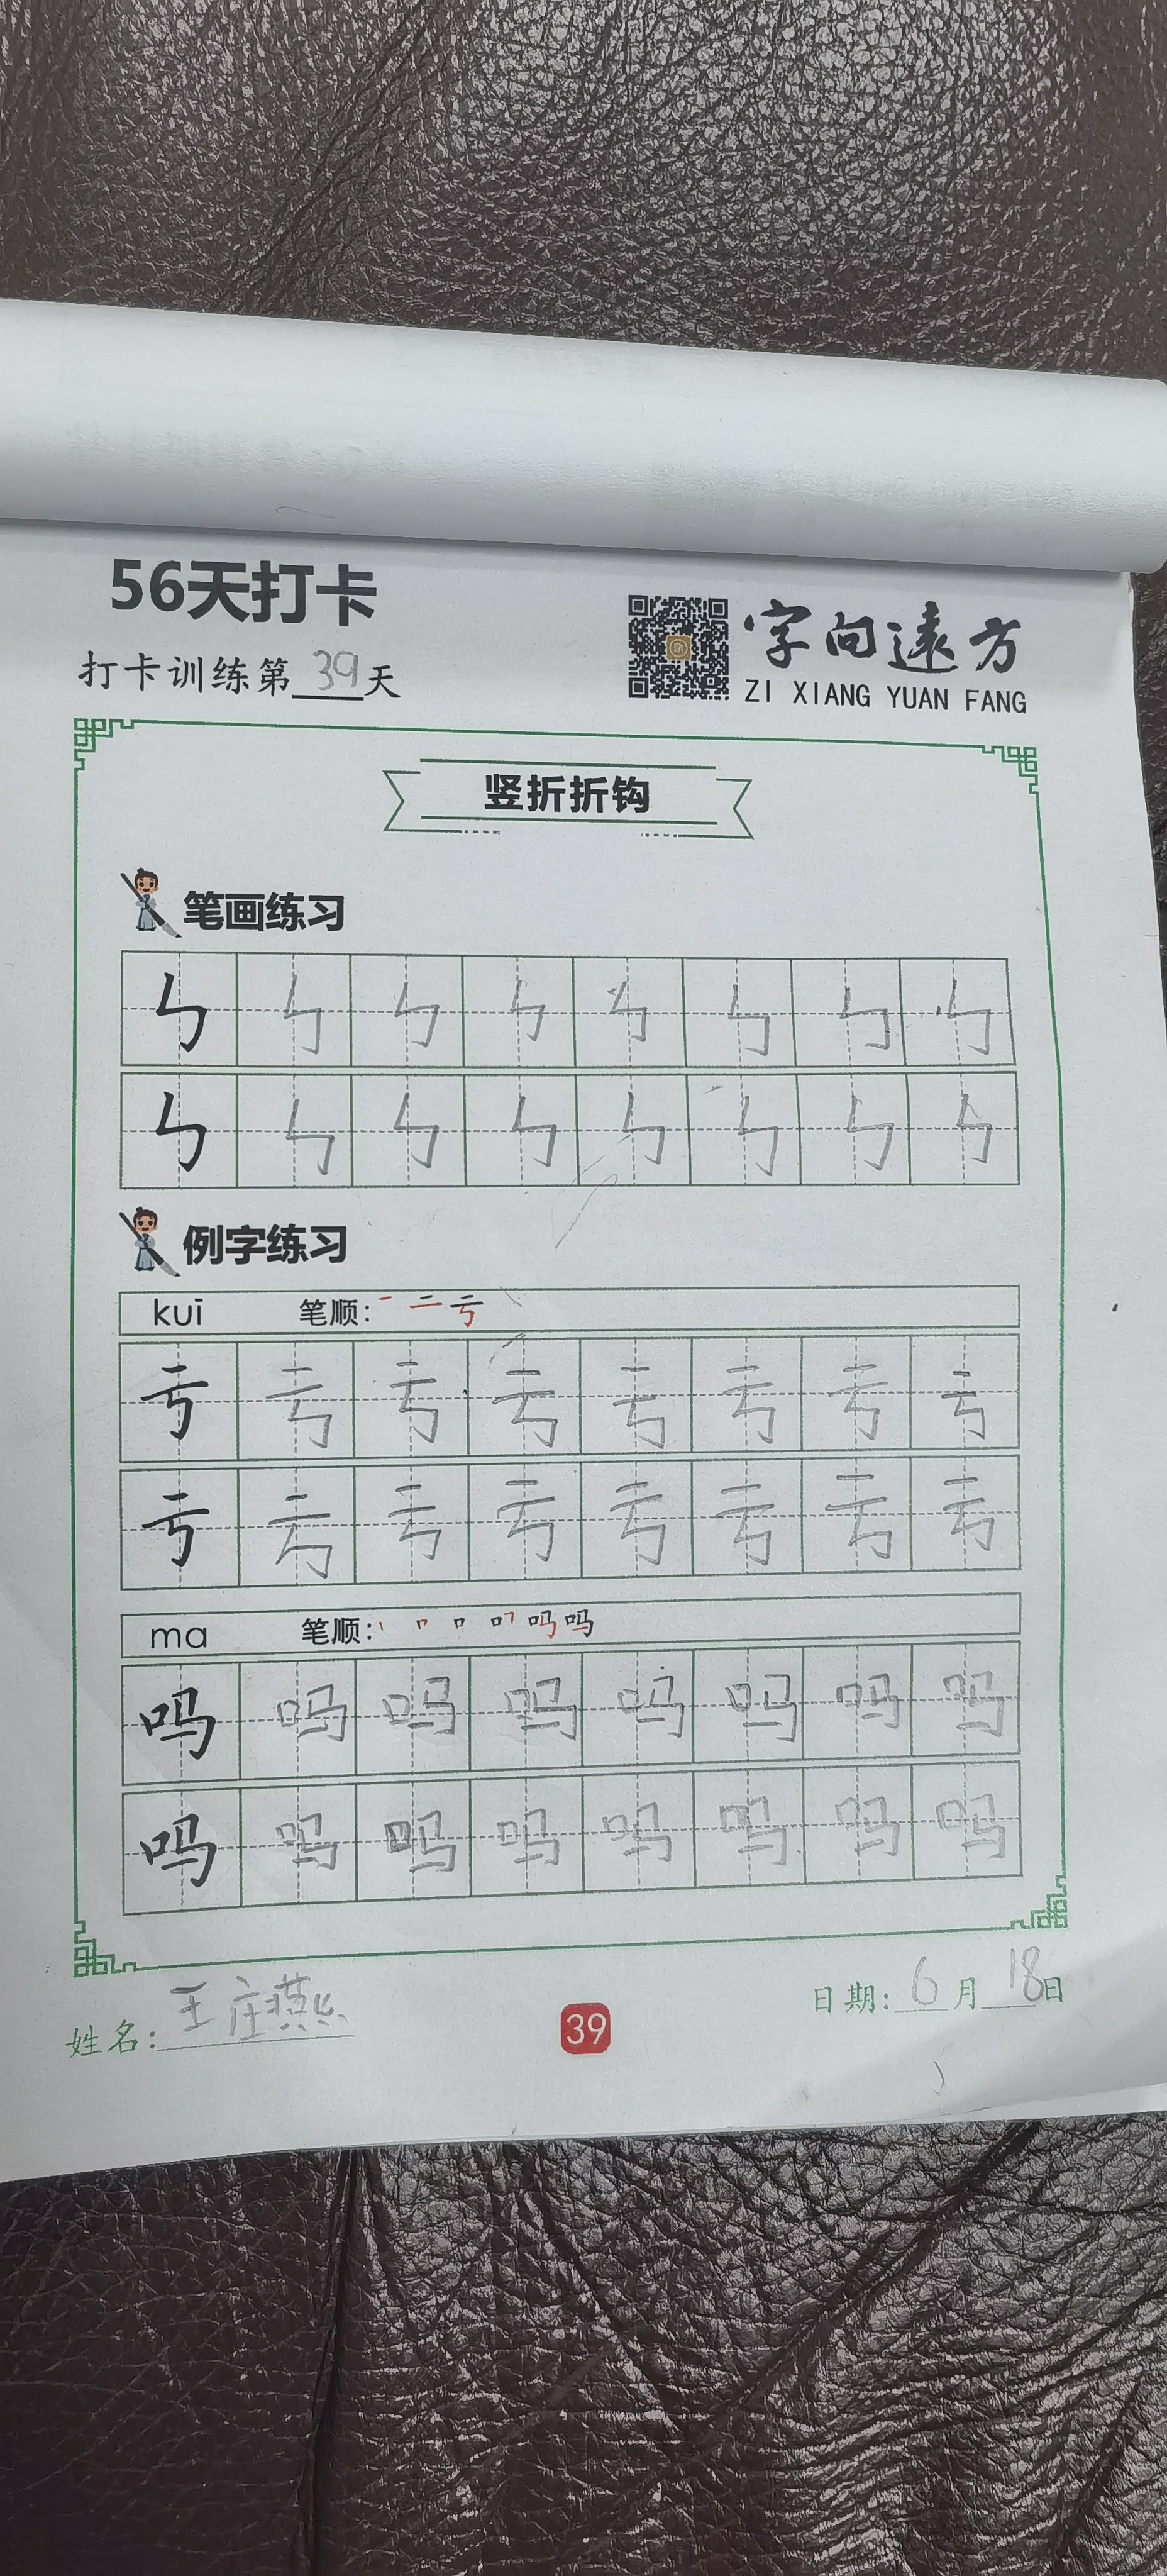 56天打卡
打卡训练第39天
字向遠方
ZI XIANG YUAN FANG
竖折折钩
笔画练习
ㄣ ㄣ ㄣ ㄣ ㄣ ㄣ ㄣ ㄣ
ㄣ ㄣ ㄣ ㄣ ㄣ ㄣ ㄣ ㄣ
例字练习
kuī 笔顺: 一 二 亏
亏 亏 亏 亏 亏 亏 亏 亏
亏 亏 亏 亏 亏 亏 亏 亏
ma 笔顺: 丨 冂 口 吗 吗
吗 吗 吗 吗 吗 吗 吗 吗
吗 吗 吗 吗 吗 吗 吗 吗
姓名: 王庄燕
39
日期: 6月18日